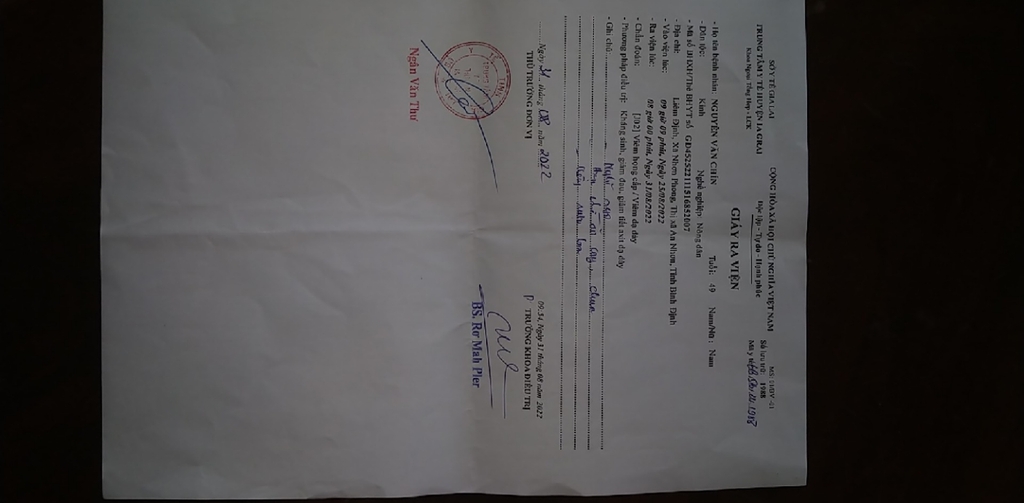 SỞ Y TẾ GIA LAI
TRUNG TÂM Y TẾ HUYỆN IA GRAI
Khoa Ngoại Tổng Hợp - LCK
CỘNG HÒA XÃ HỘI CHỦ NGHĨA VIỆT NAM
Độc lập - Tự do - Hạnh phúc
Số lưu trữ: 1988
Mã y tế
GIẤY RA VIỆN
- Họ tên bệnh nhân: NGUYỄN VĂN CHÍN Tuổi: 49 Nam/Nữ: Nam
- Dân tộc: Kinh Nghề nghiệp: Nông dân
- Mã số BHXH/Thẻ BHYT số
- Địa chỉ: Liêm Định, Xã Nhơn Phong, Thị xã An Nhơn, Tỉnh Bình Định
- Vào viện lúc: 09 giờ 09 phút, Ngày 25/08/2022
- Ra viện lúc: 08 giờ 00 phút, Ngày 31/08/2022
- Chẩn đoán: [J02] Viêm họng cấp / Viêm dạ dày
- Phương pháp điều trị: Kháng sinh, giảm đau, giảm tiết axit dạ dày
- Ghi chú:
Ngày 31 tháng 08 năm 2022
THỦ TRƯỞNG ĐƠN VỊ
Ngân Văn Thư
09:54, Ngày 31 tháng 08 năm 2022
P TRƯỞNG KHOA ĐIỀU TRỊ
BS. Rơ Mah Pler